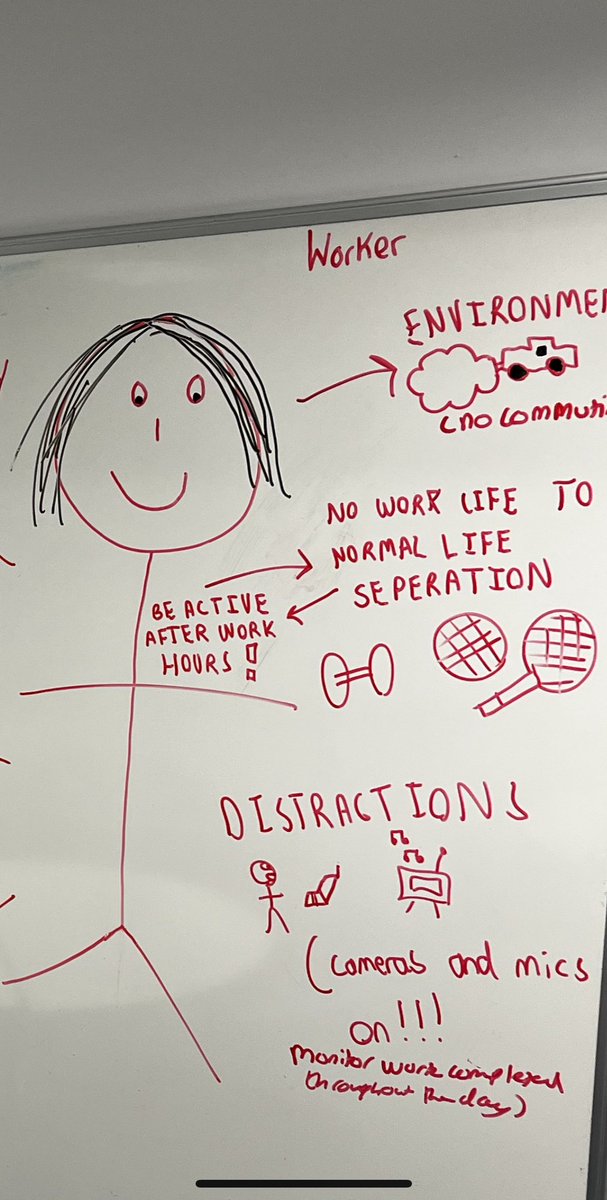 Worker
ENVIRONME
(no commuti
NO WORK LIFE TO
NORMAL LIFE
SEPERATION
BE ACTIVE
AFTER WORK
HOURS !
DISTRACTIONS
(cameras and mics
on!!!
Monitor work completed
throughout the day)